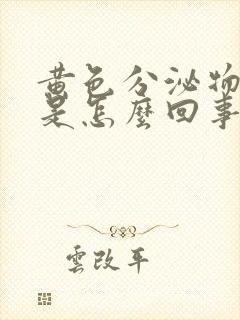 黄色分泌物
是怎麼回事
雲改平